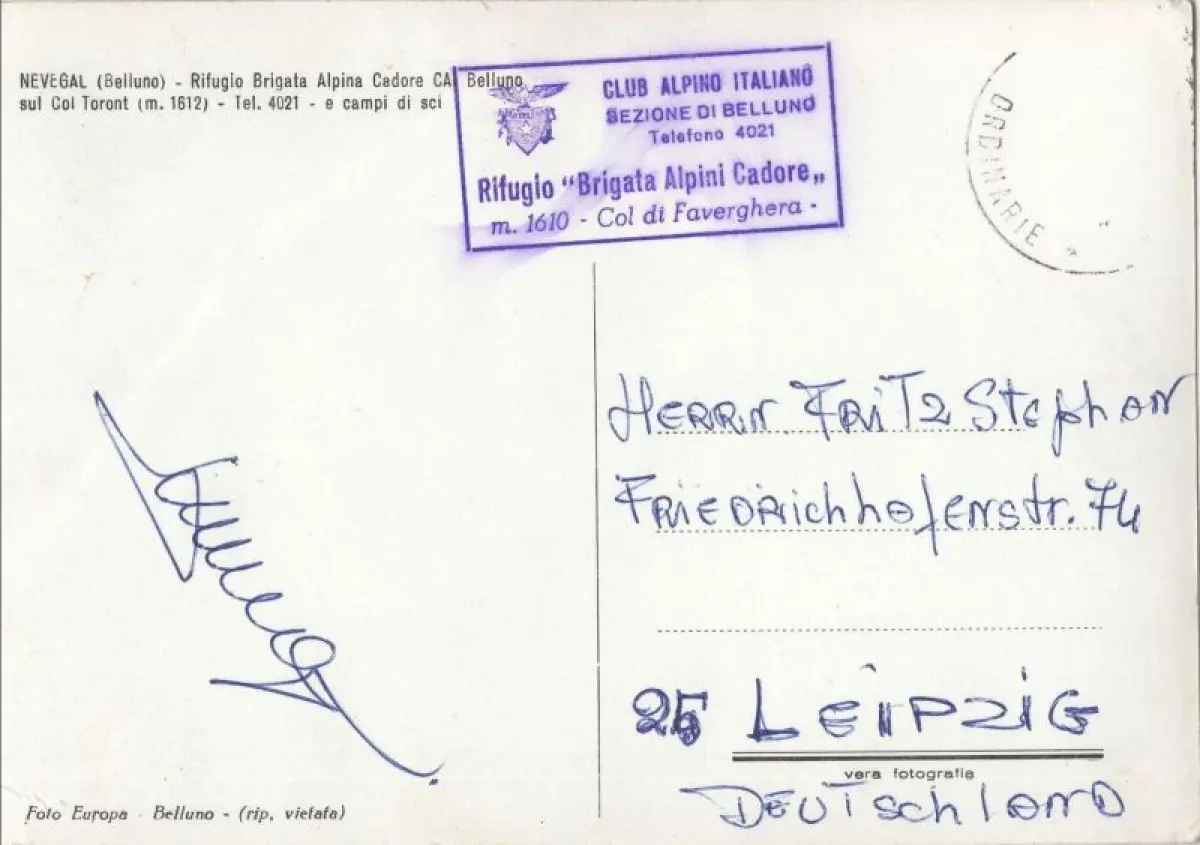 NEVEGAL (Belluno) - Rifugio Brigata Alpina Cadore CAI Belluno
sul Col Toront (m. 1612) - Tel. 4021 - e campi di sci
CLUB ALPINO ITALIANO
SEZIONE DI BELLUNO
Telefono 4021
Rifugio “Brigata Alpini Cadore„
m. 1610 - Col di Faverghera -
ORDINARIE *
HERRN. FRiTZ Stephan
FRIEDRichhafenstr. 74
25 LEiPZiG
vera fotografia
DEUTSchlanD
Foto Europa - Belluno - (rip. vietata)